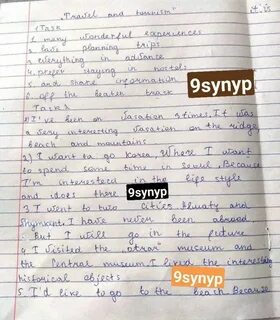 "Travel and tourism"
1 Task
1. many wonderful experiences
2. love planning trips
3. everything in advance
4. prefer staying in hostels
5. and share information
6. off the beaten track
Task 2
1) I've been on vasation 5 times. It was
a very interesting vasation on the ridge,
beach and mountains
2) I want to go Korea, Where I want
to spend some time in Seoul. Because
I'm interested in the life style
and does there
3. I went to two cities Almaty and
Shymkent. I have never been abroad.
But I will go in the future
4. I visited the "otrar" museum and
the Central museum. I liked the interesting
historical objects
5. I'd like to go to the beach. Because
9synyp
9synyp
9synyp